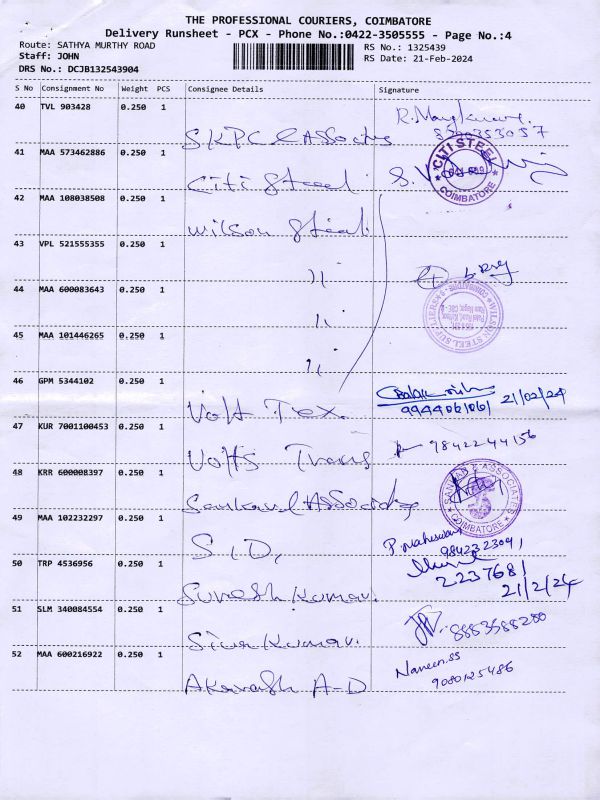 THE PROFESSIONAL COURIERS, COIMBATORE
Delivery Runsheet - PCX - Phone No.:0422-3505555 - Page No.:4
Route: SATHYA MURTHY ROAD
RS No.: 1325439
Staff: JOHN
RS Date: 21-Feb-2024
DRS No.: DCJB132543904
S No Consignment No Weight PCS Consignee Details Signature
40 TVL 903428 0.250 1
S.K.P.C & Associates
41 MAA 573462886 0.250 1
Citi Steel
CITI STEEL
COIMBATORE
42 MAA 108038508 0.250 1
Wilson Steel
43 VPL 521555355 0.250 1
11
44 MAA 600083643 0.250 1
11
WILSON STEEL SUPPLIERS
COIMBATORE
45 MAA 101446265 0.250 1
11
46 GPM 5344102 0.250 1
Volt Tex.
21/02/24
47 KUR 7001100453 0.250 1
9842244156
Volts Trans
48 KRR 600008397 0.250 1
Sankar Associates
SANKAR & ASSOCIATES
COIMBATORE
49 MAA 102232297 0.250 1
P. Maheswari
S.I.D,
50 TRP 4536956 0.250 1
2237681
21/2/24
Suresh Kumar.
51 SLM 340084554 0.250 1
8883588280
Siva Kumar.
52 MAA 600216922 0.250 1
Naveen.ss
9080125486
Akarash A-D